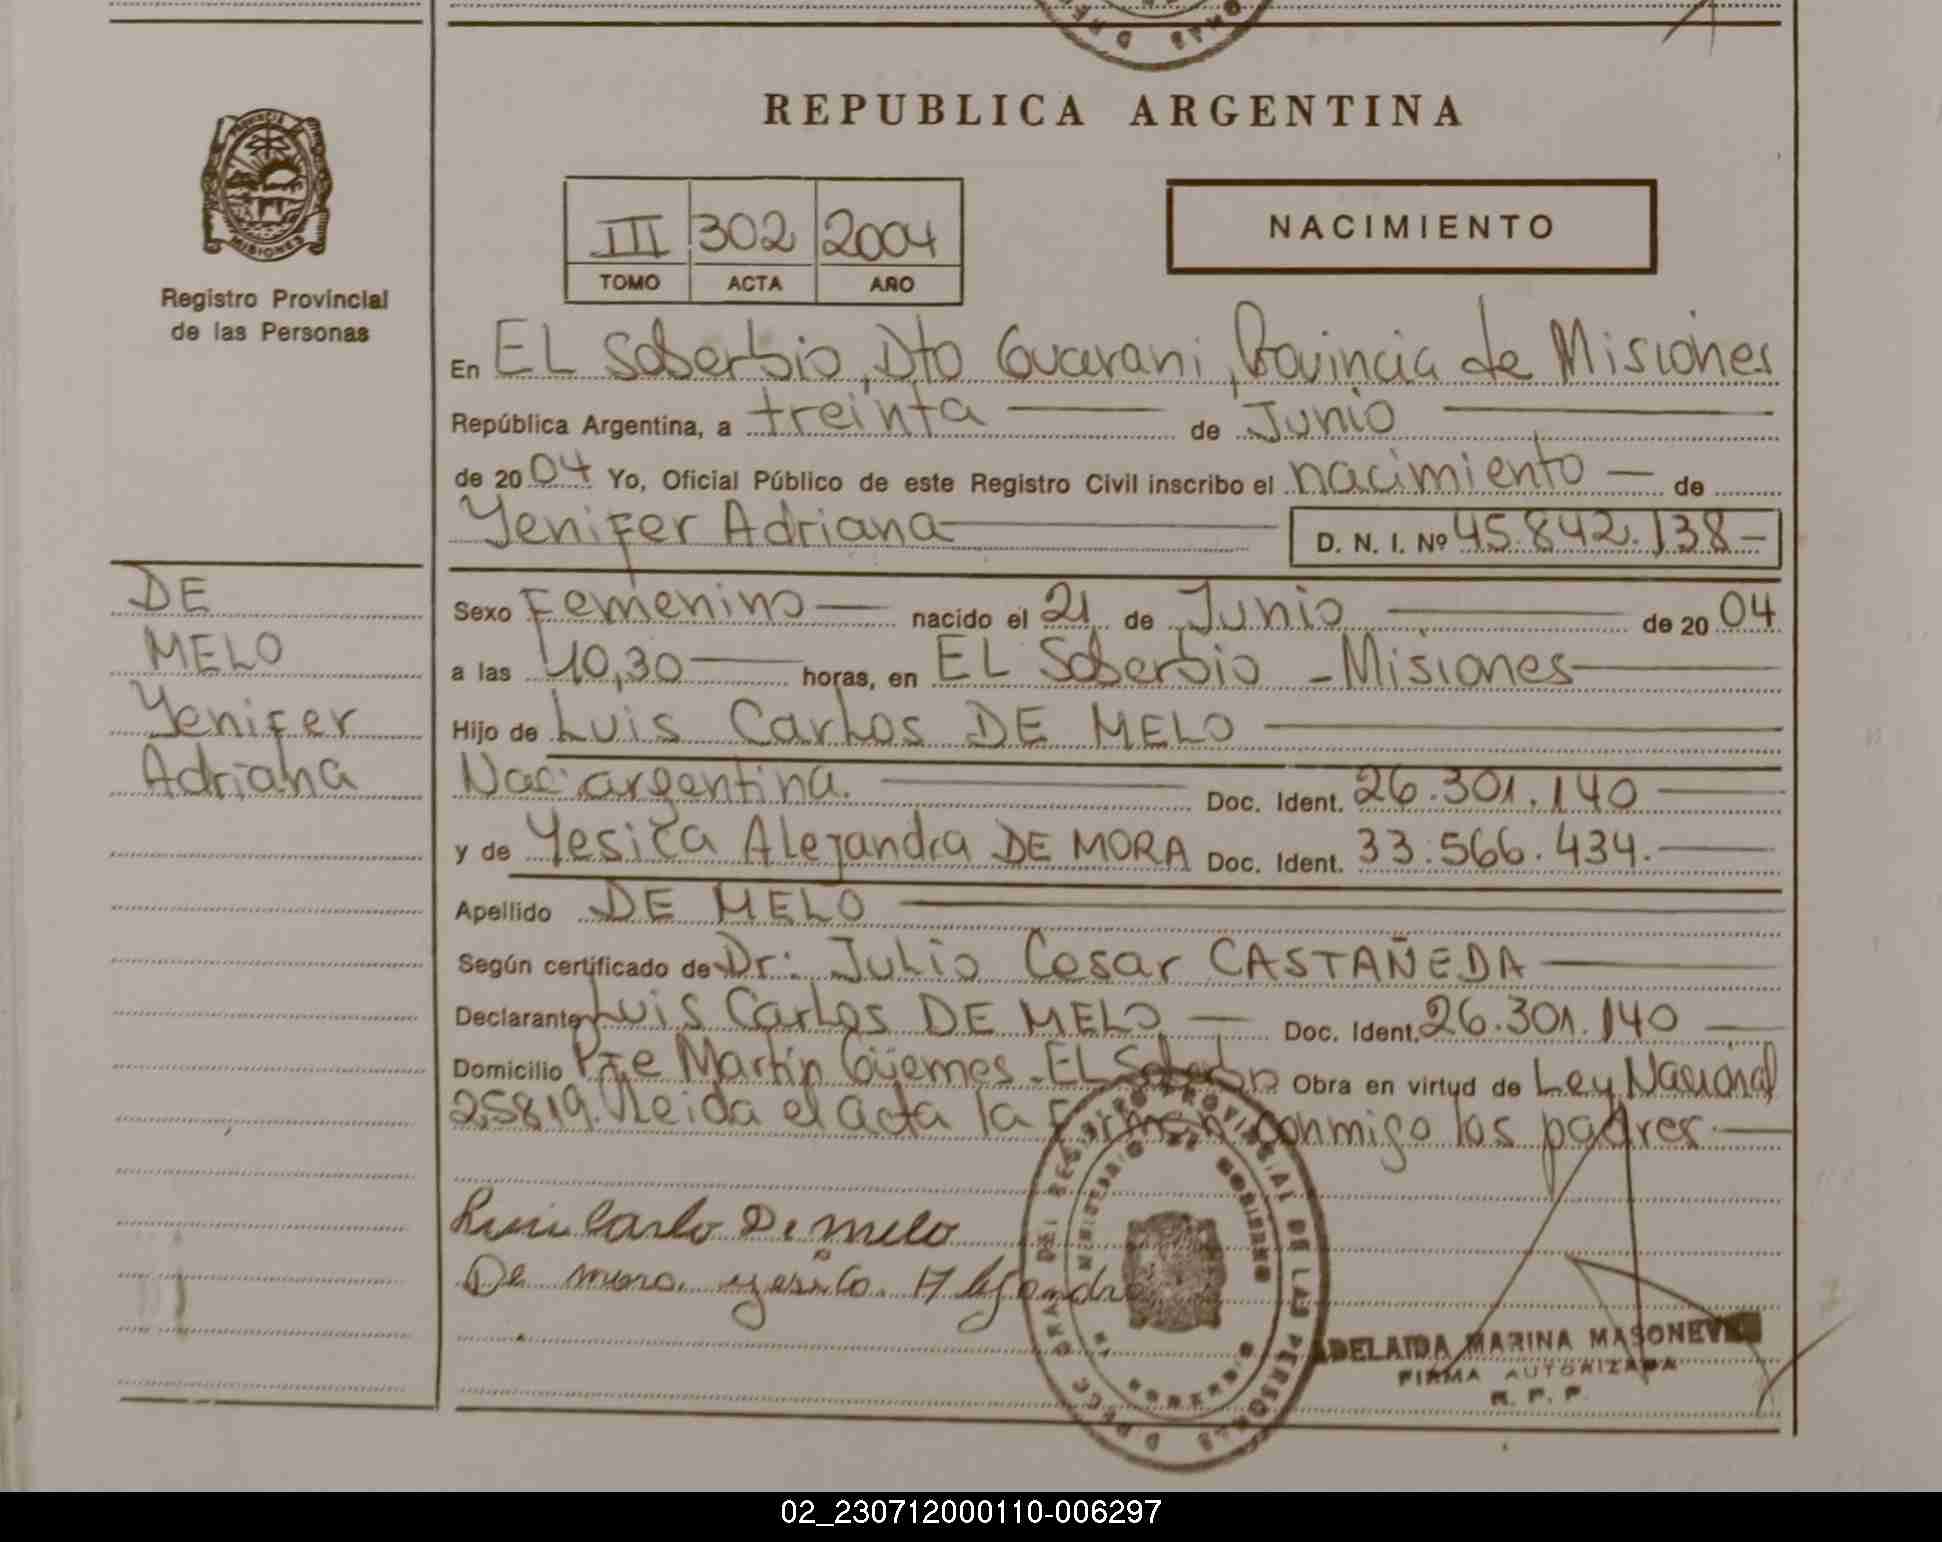 REPUBLICA ARGENTINA
PROVINCIA DE
MISIONES
Registro Provincial
de las Personas
III 302 2004
TOMO ACTA AÑO
NACIMIENTO
En EL Soberbio, Dto Guarani, Provincia de Misiones
República Argentina, a treinta de Junio
de 2004 Yo, Oficial Público de este Registro Civil inscribo el nacimiento de
Yenifer Adriana D. N. I. Nº 45.842.138-
DE
MELO
Yenifer
Adriana
Sexo Femenino nacido el 21 de Junio de 2004
a las 10,30 horas, en EL Soberbio - Misiones
Hijo de Luis Carlos DE MELO
Nac. argentina. Doc. Ident. 26.301.140
y de Yesica Alejandra DE MORA Doc. Ident. 33.566.434.
Apellido DE MELO
Según certificado de Dr. Julio Cesar CASTAÑEDA
Declarante Luis Carlos DE MELO Doc. Ident. 26.301.140
Domicilio Pje Martín Güemes - EL Soberbio Obra en virtud de Ley Nacional
25819. Leida el acta la firman conmigo los padres
Luis Carlo De melo
De mora. yesica. Alejandra
REGISTRO PROVINCIAL DE LAS PERSONAS
MINISTERIO DE GOBIERNO
ADELAIDA MARINA
FIRMA AUTORIZADA
R. P. P.
02_230712000110-006297